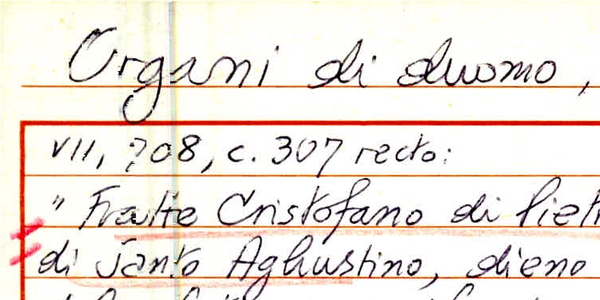 Organi di duomo,
VII, 708, c. 307 recto:
" Fratte Cristofano di Piet
di Santo Aghustino, dieno